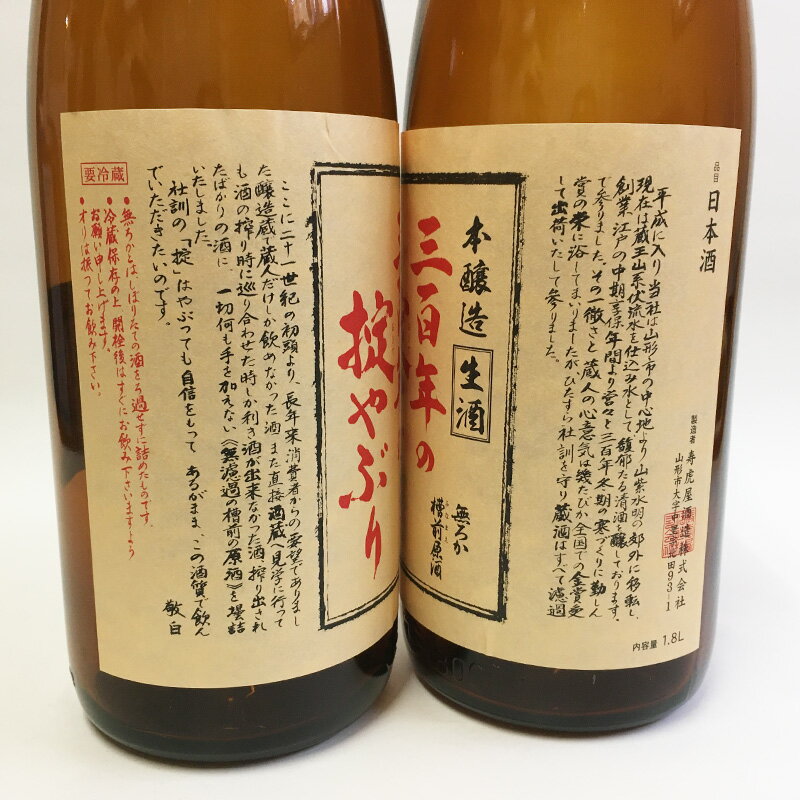 品目
日本酒
平成に入り当社は山形市の中心地より山紫水明の郊外に移転し、
現在は蔵王山系伏流水を仕込み水として、馥郁たる清酒を醸しております。
創業江戸の中期享保年間より営々と三百年冬期の寒づくりに勤しん
で参りました。その一徹さと蔵人の心意気は幾たびか全国での金賞受
賞の栄に浴してまいりましたがひたすら社訓を守り蔵酒はすべて濾過
して出荷いたして参りました。
製造者 寿虎屋酒造株式会社
山形市大字中里字北田93-1
内容量 1.8L
本醸造 生酒
三百年の
無ろか
槽前原酒
掟やぶり
ここに二十一世紀の初頭より、長年来消費者からの要望でありまし
た醸造蔵で蔵人だけしか飲めなかった酒 また直接酒蔵へ見学に行って
も酒の搾り時に巡り合わせた時しか利き酒が出来なかった酒 搾り出され
たばかりの酒に、一切何も手を加えない《無濾過の槽前の原酒》を壜詰
いたしました。
社訓の「掟」はやぶっても自信をもって あるがまま、この酒質で飲ん
でいただきたいのです。
敬白
要冷蔵
●無ろかとは、しぼりたての酒をろ過せずに詰めたものです。
●冷蔵保存の上 開栓後はすぐにお飲み下さいますよう
お願い申し上げます。
●オリは振ってお飲み下さい。